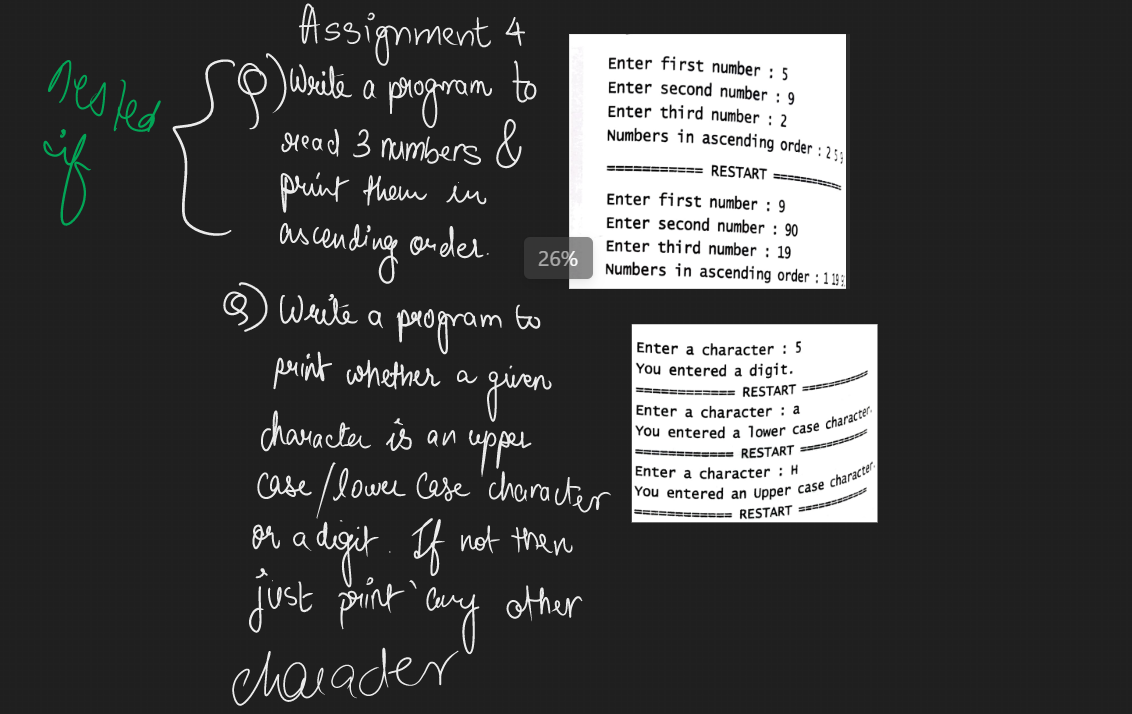 Assignment 4
nested
if
Q) Write a program to
read 3 numbers &
print them in
ascending order.
Enter first number : 5
Enter second number : 9
Enter third number : 2
Numbers in ascending order : 2 5 9
============ RESTART =========
Enter first number : 9
Enter second number : 90
Enter third number : 19
Numbers in ascending order : 1 19
26%
Q) Write a program to
print whether a given
character is an upper
case/lower case character
or a digit. If not then
just print 'any other
character
Enter a character : 5
You entered a digit.
============ RESTART =========
Enter a character : a
You entered a lower case character.
============ RESTART =========
Enter a character : H
You entered an Upper case character.
============ RESTART =========